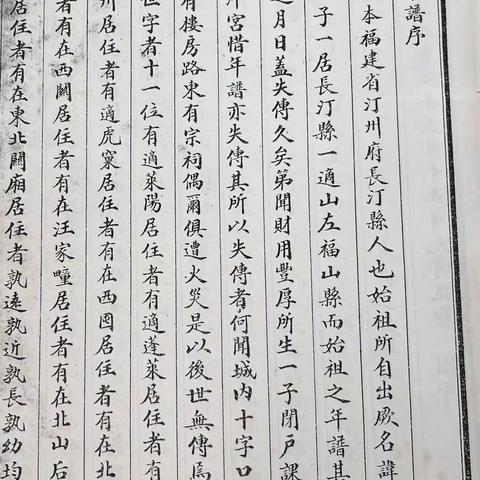 譜序
本福建省汀州府長汀縣人也始祖所自出厥名諱
子一居長汀縣一適山左福山縣而始祖之年譜其
月日蓋失傳久矣第聞財用豐厚所生一子閉戶課
宮惜年譜亦失傳其所以失傳者何聞城内十字口
有樓房路東有宗祠偶爾俱遭火災是以後世無傳焉
世字者十一位有適萊陽居住者有適蓬萊居住者有
州居住者有適虎窠居住者有在西囤居住者有在北
者有在西關居住者有在汪家疃居住者有在北山后
居住者有在東北關廂居住者孰遠孰近孰長孰幼均